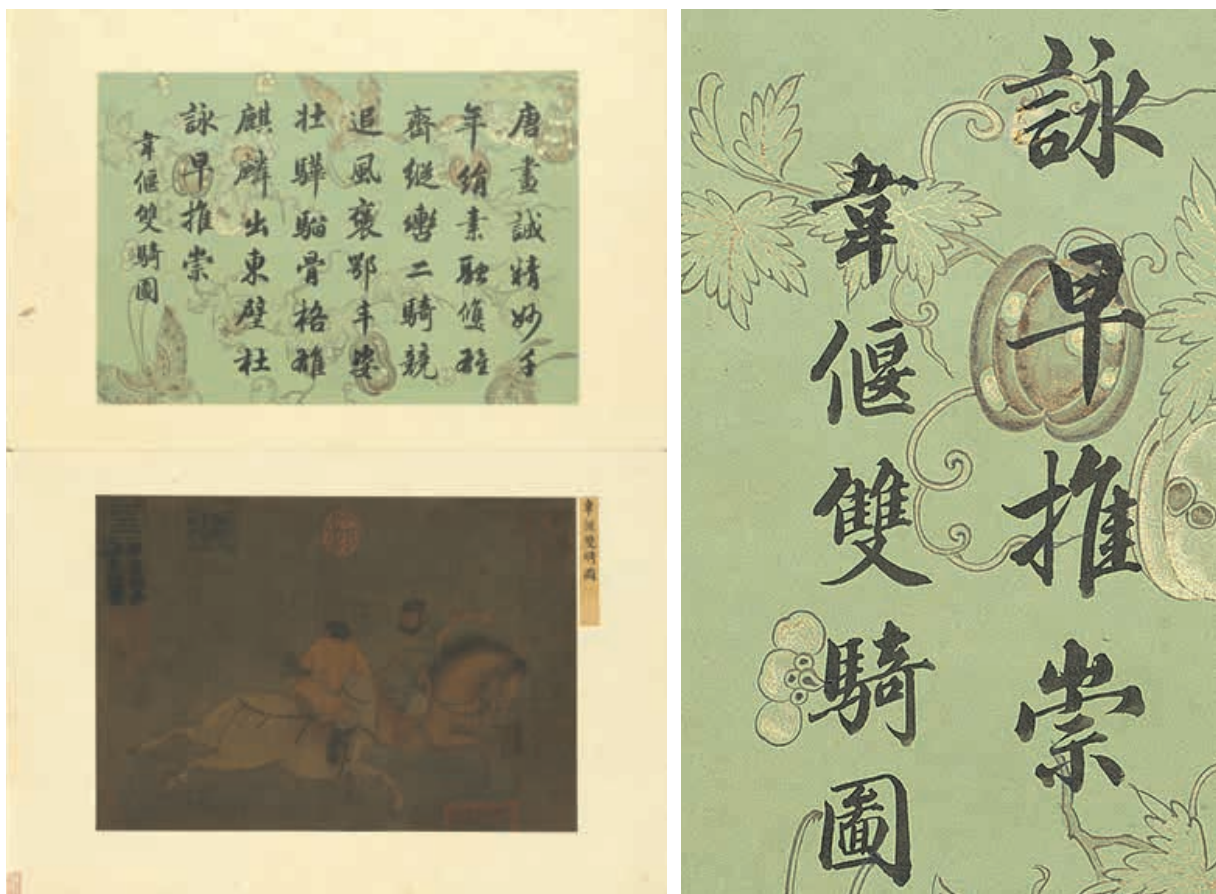 唐畫誠精妙千
年絹素融
齊縱轡二騎競
追風褒鄂丰姿
壯驊騮骨格雄
麒麟出東壁杜
詠早推崇
韋偃雙騎圖
韋偃雙騎圖
詠早推崇
韋偃雙騎圖